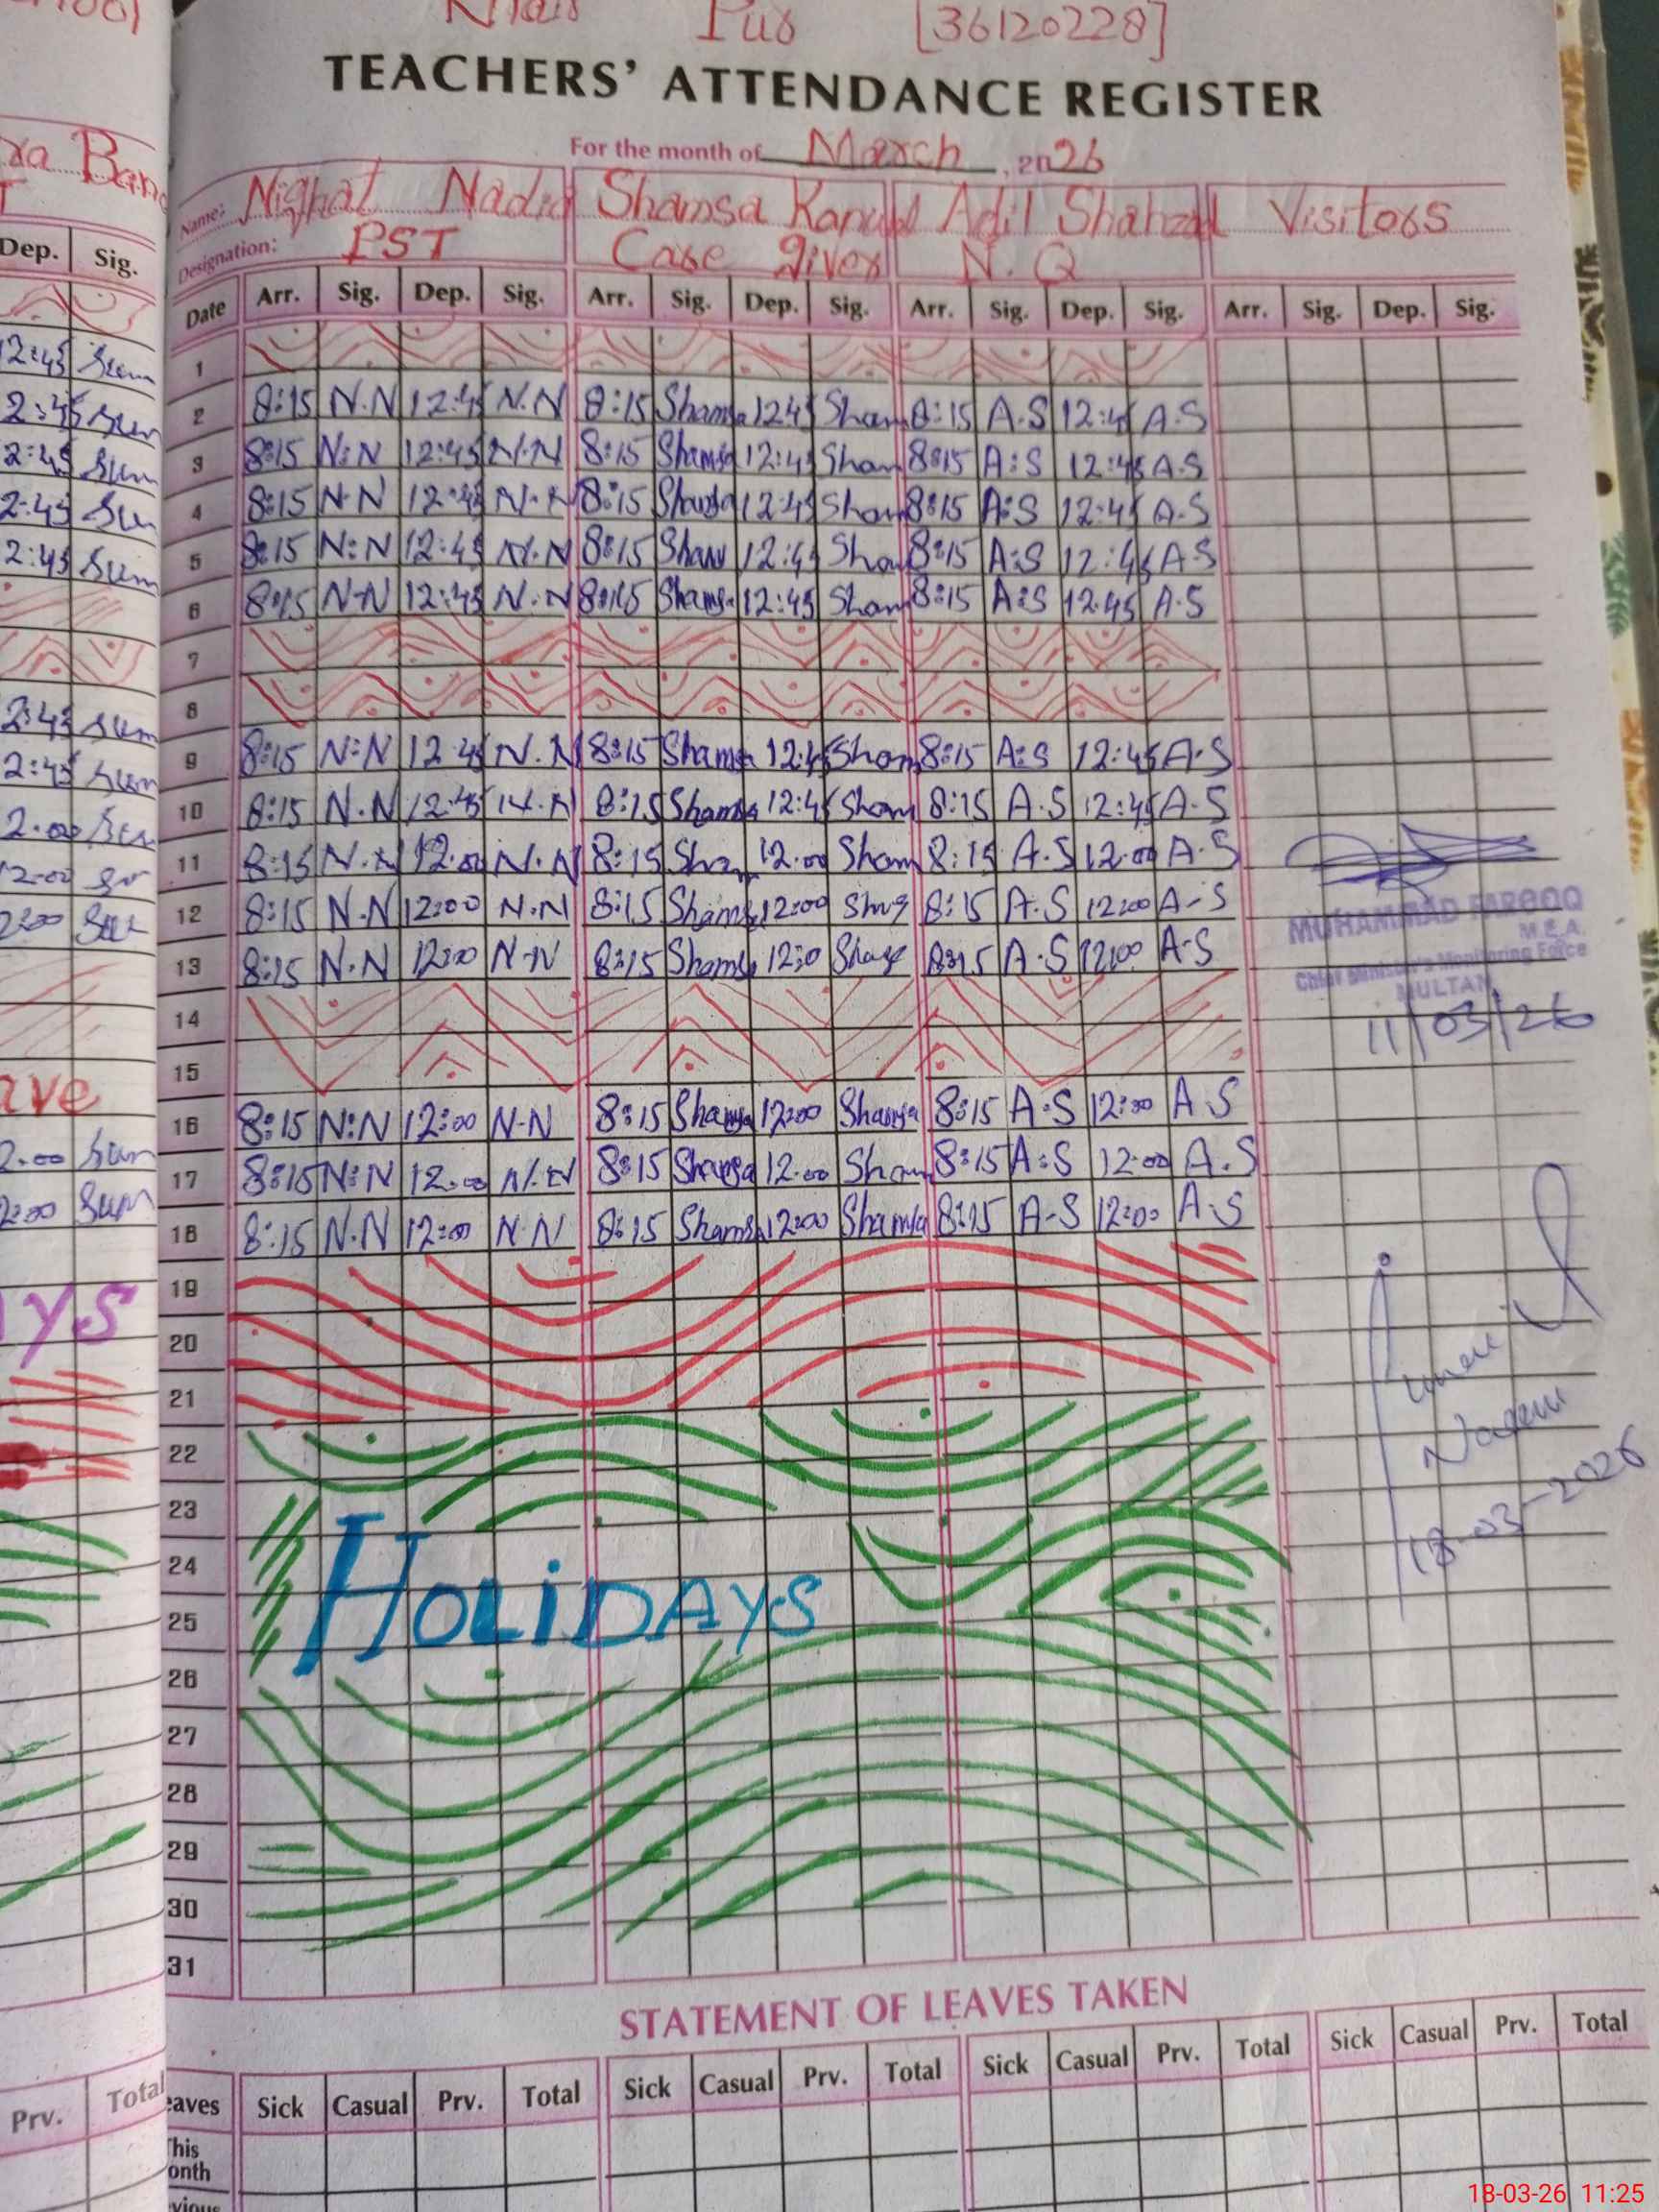 [36120228]
TEACHERS' ATTENDANCE REGISTER
For the month of March, 2026
Name: Nighat Nadia Shamsa Kanwal Adil Shahzad Visitors
Designation: PST Care giver N.Q
Date Arr. Sig. Dep. Sig. Arr. Sig. Dep. Sig. Arr. Sig. Dep. Sig. Arr. Sig. Dep. Sig.
1
2 8:15 N.N 12:45 N.N 8:15 Shamsa 1245 Sham 8:15 A.S 12:45 A.S
3 8:15 N:N 12:45 N.N 8:15 Shamsa 12:45 Sham 8:15 A:S 12:45 A.S
4 8:15 N.N 12:45 N.N 8:15 Shamsa 12:45 Sham 8:15 A:S 12:45 A.S
5 8:15 N:N 12:45 N.N 8:15 Sham 12:45 Sha 8:15 A:S 12:45 A.S
6 8:15 N.N 12:45 N.N 8:15 Shamsa 12:45 Sham 8:15 A:S 12.45 A.S
7
8
9 8:15 N:N 12:45 N.N 8:15 Shamsa 12:45 Sham 8:15 A:S 12:45 A.S
10 8:15 N.N 12:45 N.N 8:15 Shamsa 12:45 Sham 8:15 A.S 12:45 A.S
11 8:15 N.N 12.00 N.N 8:15 Sham 12.00 Sham 8:15 A.S 12.00 A.S
12 8:15 N.N 12:00 N.N 8:15 Shamsa 12:00 8:15 A.S 12:00 A-S
13 8:15 N.N 12:00 N-N 8:15 Shamsa 12:0 8:15 A.S 12:00 A-S
MUHAMMAD FAROOQ
M.E.A.
Chief Minister's Monitoring Force
MULTAN
11/03/26
14
15
16 8:15 N:N 12:00 N-N 8:15 Shamsa 12:00 Shamsa 8:15 A.S 12:00 A.S
17 8:15 N:N 12:00 N.N 8:15 Shamsa 12.00 Sham 8:15 A:S 12:00 A.S
18 8:15 N.N 12:00 N.N 8:15 Shamsa 12:00 Shamsa 8:15 A-S 12:00 A.S
19
20
21
22
23
24
25
HOLIDAYS
18-03-2026
26
27
28
29
30
31
STATEMENT OF LEAVES TAKEN
eaves Sick Casual Prv. Total Sick Casual Prv. Total Sick Casual Prv. Total Sick Casual Prv. Total
This
onth
vious
Dep. Sig.
Prv. Total
18-03-26 11:25